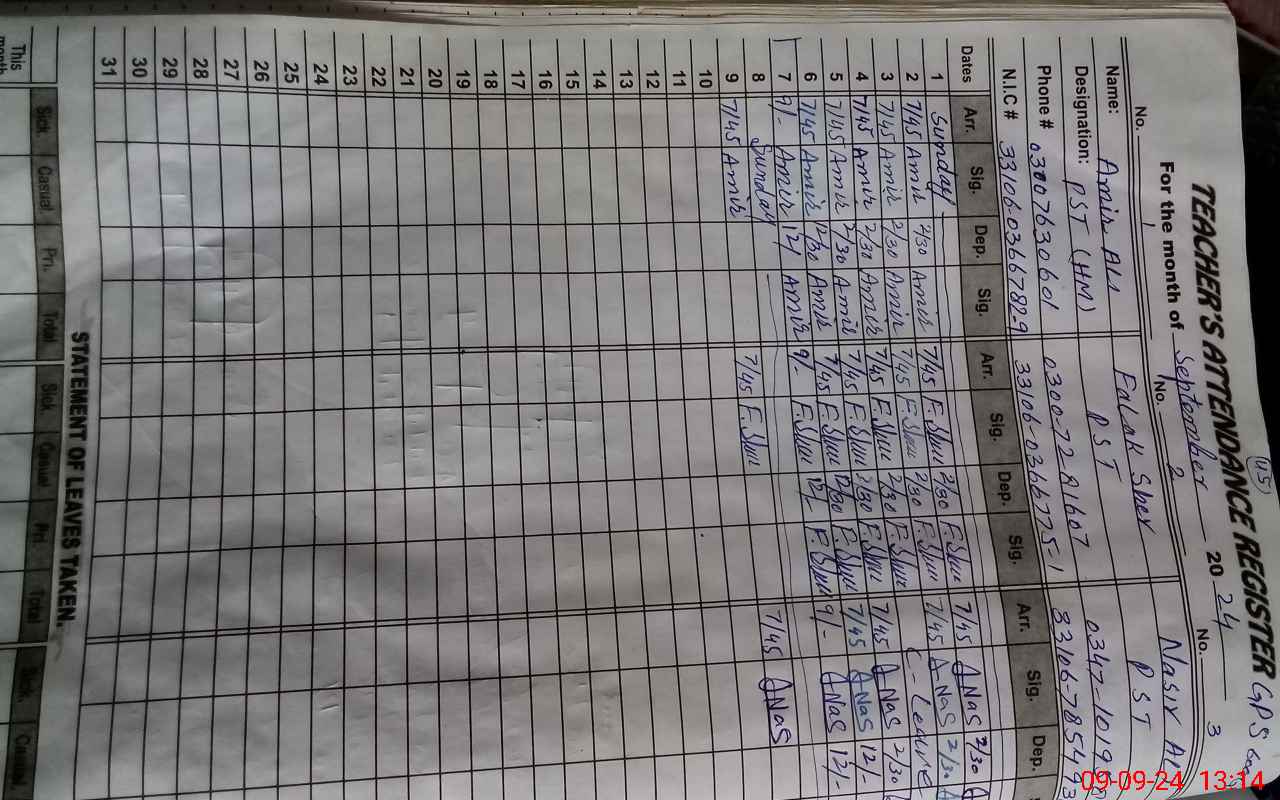 TEACHER'S ATTENDANCE REGISTER GPS
(45)
For the month of September 2024
No. 1 No. 2 No. 3
Name: Amir Ali Falak Sher Nasir Al
Designation: PST (HM) PST PST
Phone # 03007630601 0300-7281607 0347-10193
N.I.C # 33106-0366782-9 33106-0366775-1 33106-785493
Dates Arr. Sig. Dep. Sig. Arr. Sig. Dep. Sig. Arr. Sig. Dep.
1 Sunday
2 7/45 Amir 2/30 Amir 7/45 F.Sher 2/30 F.Sher 7/45 Nas 2/30
3 7/45 Amir 2/30 Amir 7/45 F.Sher 2/30 F.Sher 7/45 Nas 2/30
4 7/45 Amir 2/30 Amir 7/45 F.Sher 2/30 F.Sher C-Leave
5 7/45 Amir 2/30 Amir 7/45 F.Sher 2/30 F.Sher 7/45 Nas 2/30
6 7/45 Amir 12/30 Amir 7/45 F.Sher 12/30 F.Sher 7/45 Nas 12/-
7 9/- Amir 12/- Amir 9/- F.Sher 12/- F.Sher 9/- Nas 12/-
8 Sunday
9 7/45 Amir 7/45 F.Sher 7/45 Nas
10
11
12
13
14
15
16
17
18
19
20
21
22
23
24
25
26
27
28
29
30
31
STATEMENT OF LEAVES TAKEN.
Sick. Casual. Pri. Total Sick. Casual Pri. Total Sick. Casual.
This month
09-09-24 13:14